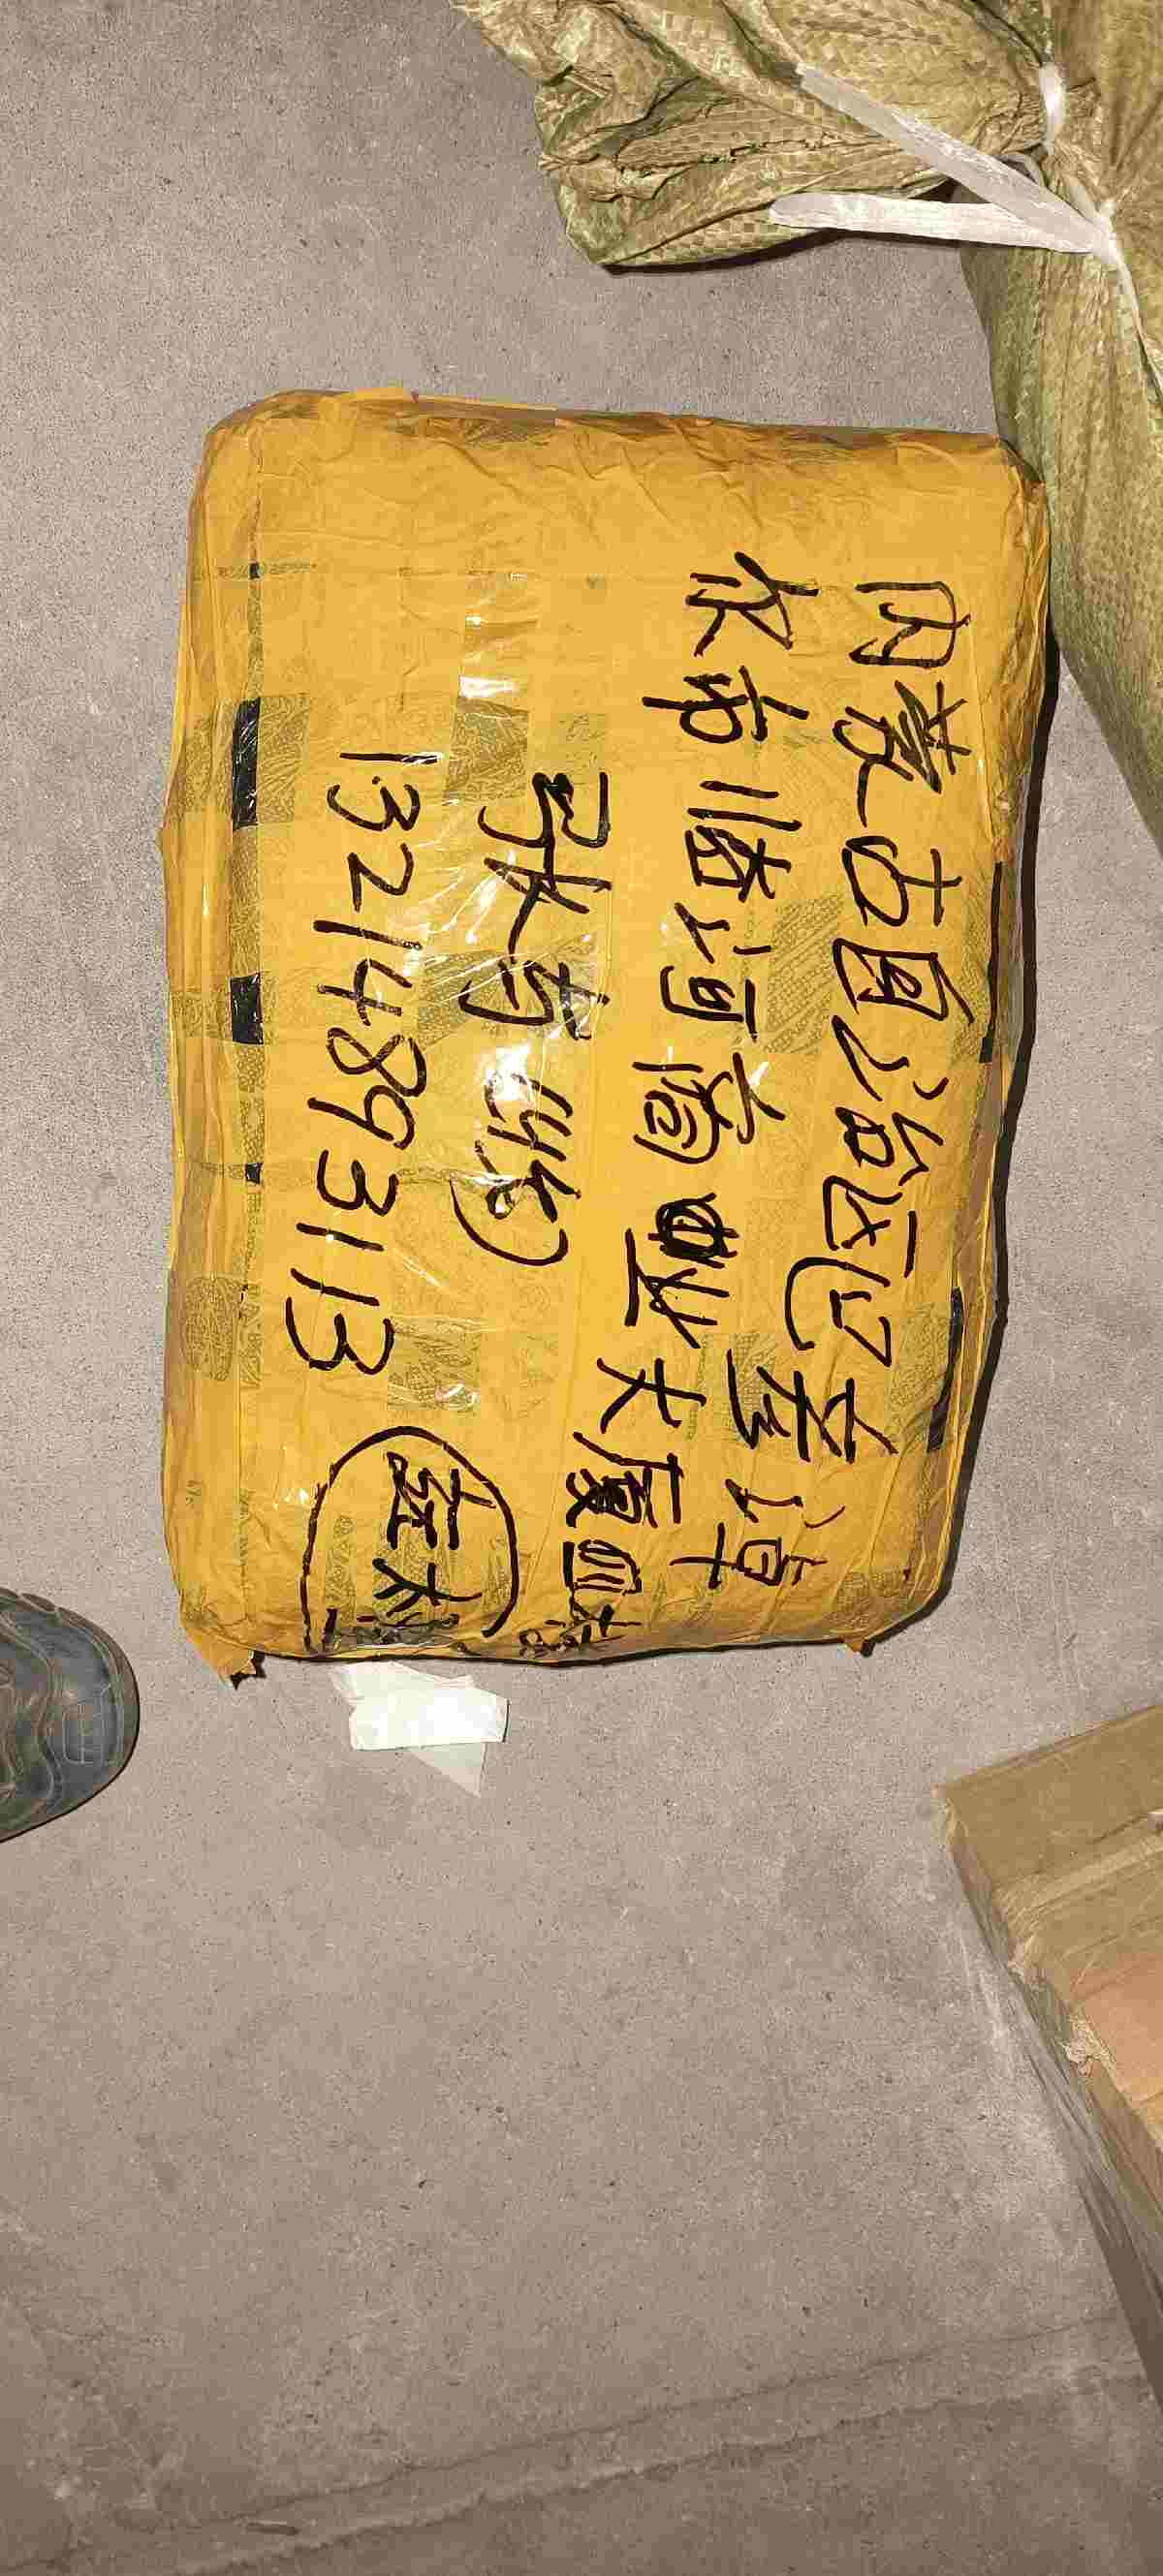 内蒙古自治区巴彦淖
尔市临河商业大厦四楼
张方(收)
13214893113